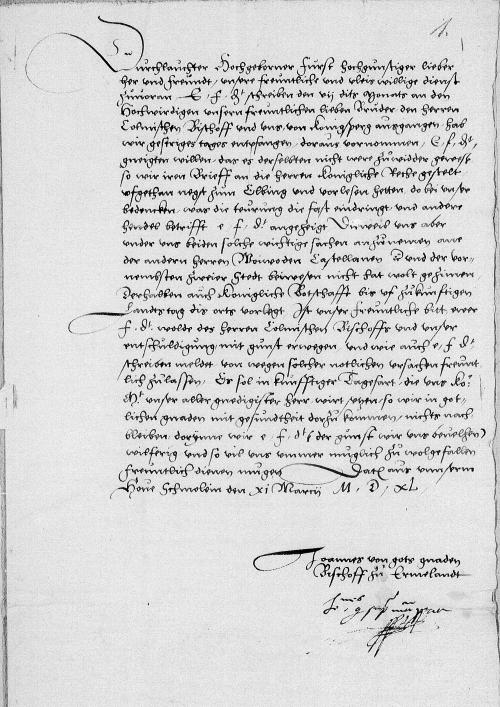 1.
Durchlauchter Hochgeborner Furst hochgunstiger lieber
her vnd freundt, vnsere freuntliche vnd vleis willige dienst
zuuoran. E. f. d. schreiben den vij dits Monats an den
Hochwirdigen vnsern freuntlichen lieben Bruder den herren
Colmischen Bischoff vnd vns von Kunigsperg ausgangen, hab
wir gestriges tages entpfangen, doraus vornommen, E. f. d.
gneigten willen, das es derselbten nicht were zuwidder gewest
so wir iren Brieff an die herren Konigliche Rethe gestelt
vfgethan negst zum Elbing vnd vorlesen hetten, do bei vnser
bedencken, was die teurung die fast eindringt, vnd andere
hendel betrifft e. f. d. angezeigt Dieweil vns aber
vnder vns beiden solche wichtige sachen anzunemen ane
der andern herren Woiwoden Castellanen vnd der vor-
nembsten zweier Stedt beiwesen nicht hat wolt gezimen,
Derhalben auch Konigliche Botschafft bis vf zukunftigen
Landtstag dis orts vorlegt Ist vnser freuntliche bitt, ewer
f. d. wolde des herren Colmischen Bischoffs vnd vnser
entschuldigung mit gunst erwegen, vnd wie auch e. f. d.
schreiben meldet, von wegen solcher notlichen vrsachen freunt
lich zulassen, Es sol in kunfftiger Tagefart, die vns Ko.
Mt. vnser aller gnedigister herr wirt setzen, so wir in got-
lichen gnaden mit gesundtheit dorzu kommen, nichts nach
bleiben, dorinne wir e. f. d. (der gunst wir vns beuelhen)
wilferig vnd so vil vns vmmer muglich zu wolgefallen
freuntlich dienen mugen Datum aus vnserm
Houe Schmolein den xi Marcij M. D. XL
Joannes von gots gnaden
Bischoff zu Ermelandt